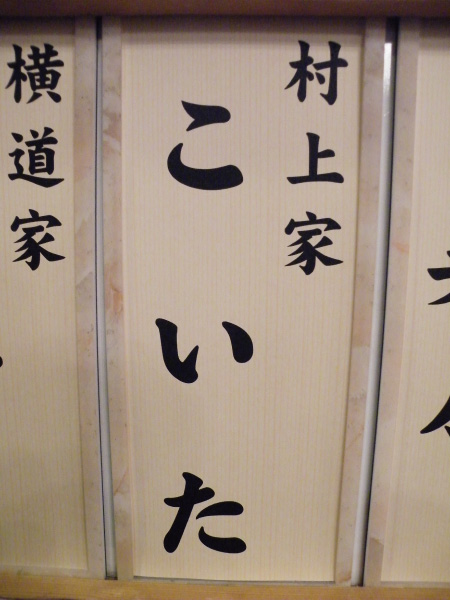 村上家
こいた
横道家